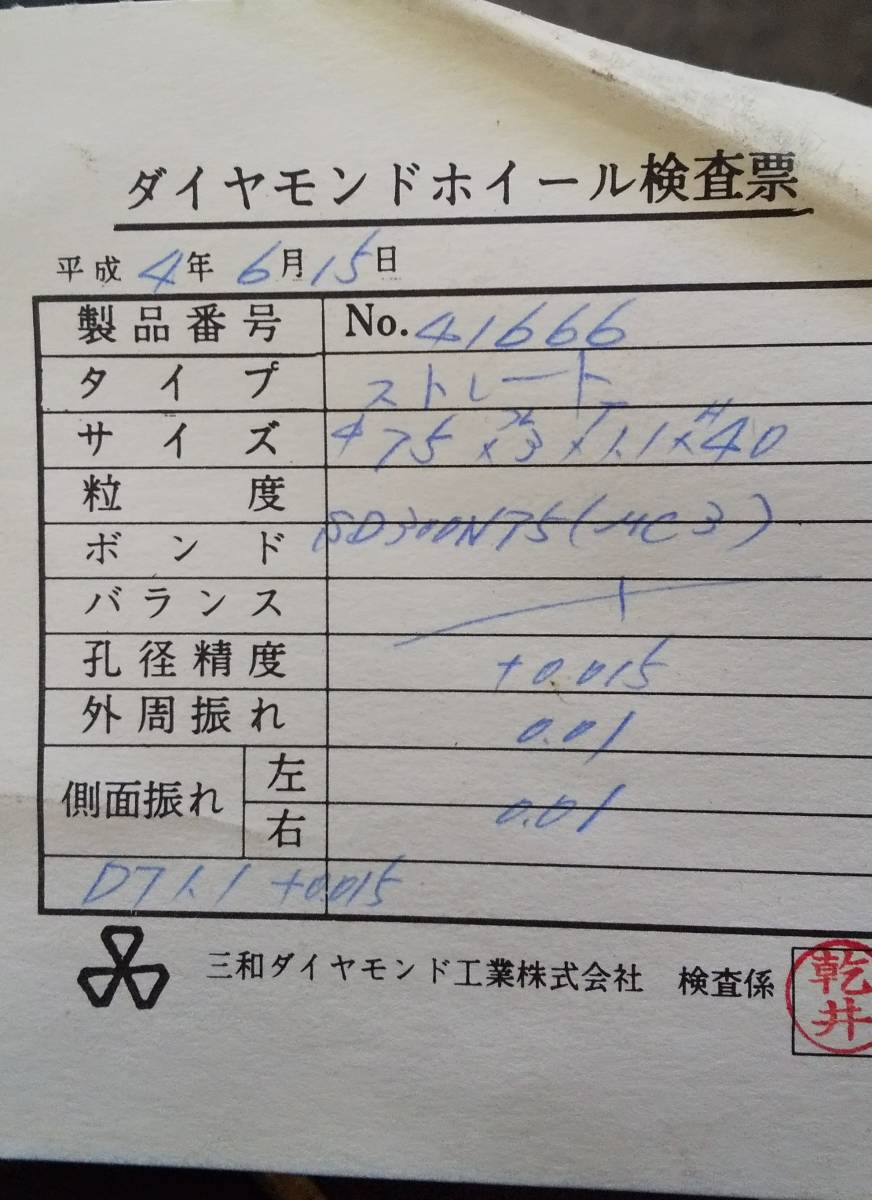 ダイヤモンドホイール検査票
平成 4年 6月15日
製品番号 No.41666
タイプ ストレート
サイズ
粒度
ボンド
バランス
孔径精度 +0.015
外周振れ 0.01
側面振れ 左
右 0.01
+0.015
三和ダイヤモンド工業株式会社 検査係 乾井